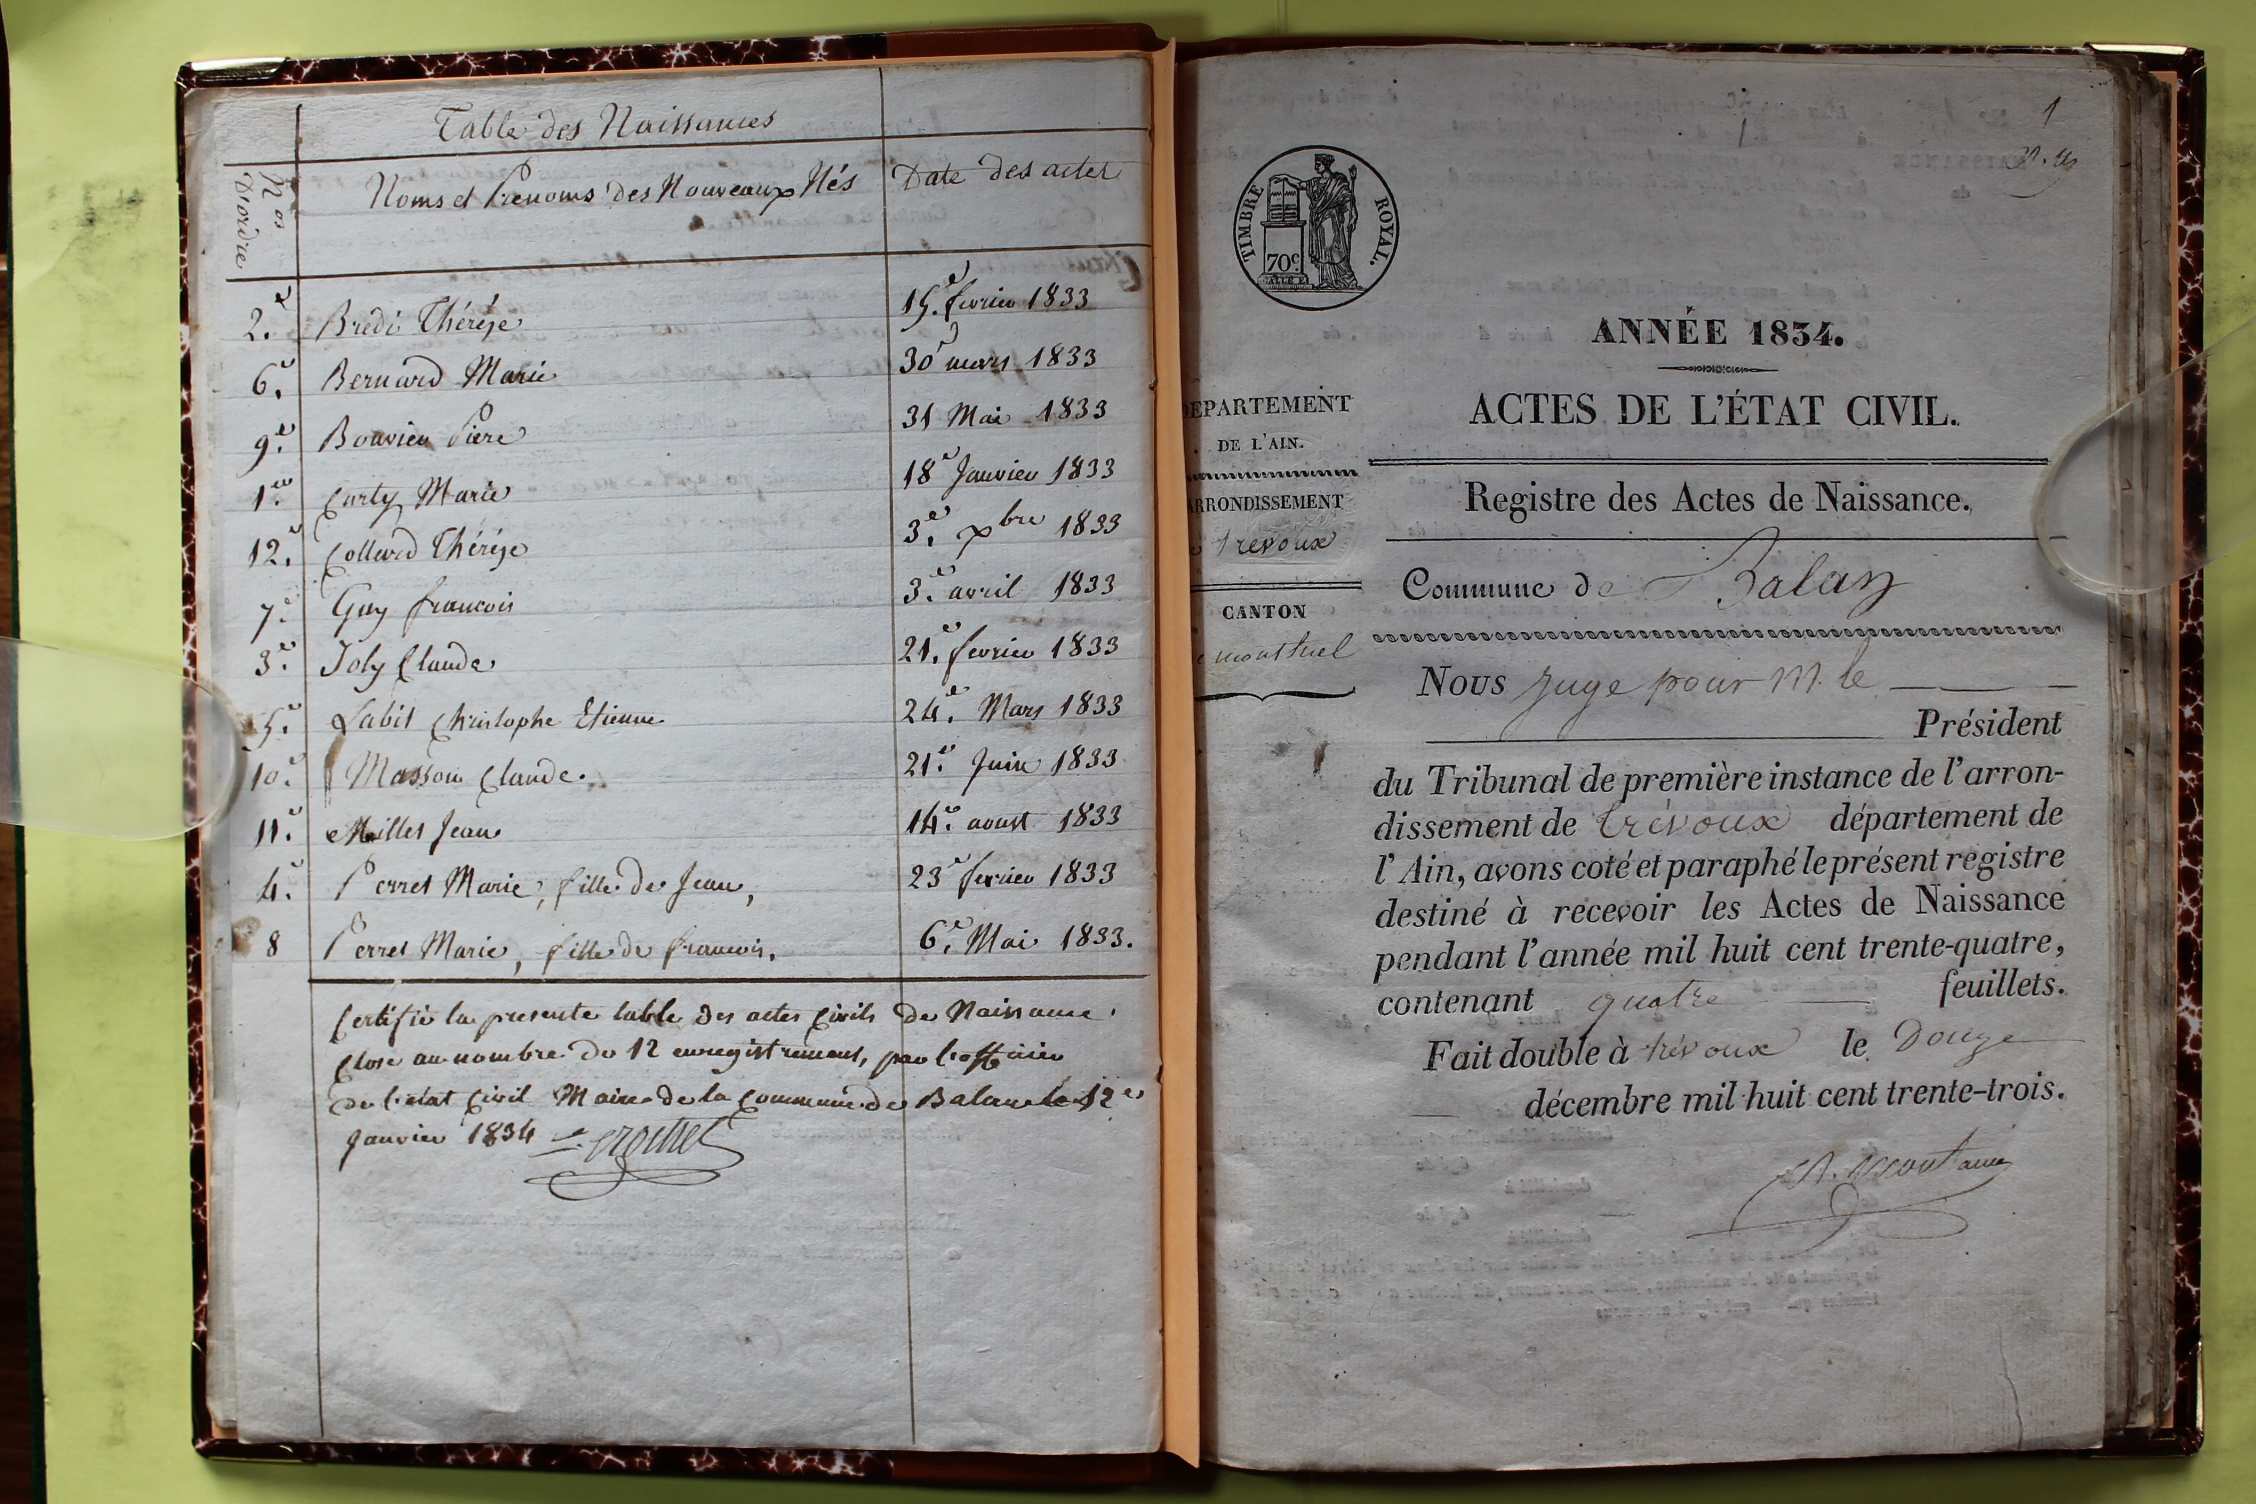 Table des Naissances
Nos D'ordre
Noms et Prenoms des Nouveaux Nés
Date des actes
2.e Bredi Thérèse 15.e fevrier 1833
6.e Bernard Marie 30e mars 1833
9.e Bouvier Piere 31 Mai 1833
1.er Carty Marie 18e Janvier 1833
12.e Collard Thérèse 3.e xbre 1833
7.e Guy francois 3.e avril 1833
3.e Joly Claude 21.e fevrier 1833
5.e Labit Christophe Etienne 24.e Mars 1833
10.e Masson Claude. 21.e Juin 1833
11.e Millet Jean 14.e aoust 1833
4.e Perret Marie, fille de Jean, 23e fevrier 1833
8 Perret Marie, fille de francois. 6.e Mai 1833.
Certifié la presente table des actes Civils de Naissance
Close au nombre de 12 enregistrement, par l'officier
de l'état Civil Maire de la Commune de Balan le 12e
Janvier 1834
1
TIMBRE ROYAL.
70c
ANNÉE 1834.
DÉPARTEMENT
DE L'AIN.
ARRONDISSEMENT
trevoux
CANTON
montluel
ACTES DE L'ÉTAT CIVIL.
Registre des Actes de Naissance.
Commune de Balan
Nous Juge pour M. le
Président
du Tribunal de première instance de l'arron-
dissement de trévoux département de
l'Ain, avons coté et paraphé le présent registre
destiné à recevoir les Actes de Naissance
pendant l'année mil huit cent trente-quatre,
contenant quatre feuillets.
Fait double à trévoux le Douze
décembre mil huit cent trente-trois.